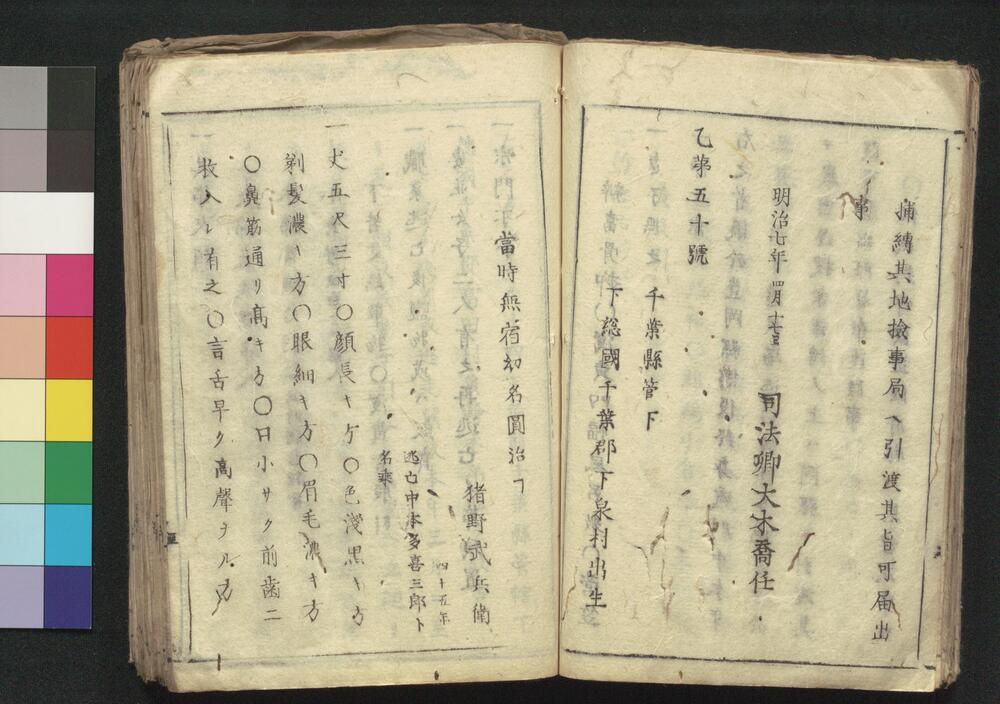 捕縛其地撿事局ヘ引渡其旨可届出
事
明治七年四月十七日
司法卿大木喬任
乙第五十號
千葉縣管下
下總國千葉郡下泉村出生
當時無宿幼名圓治ヿ
猪野武兵衞
四十五年
逃亡中本多喜三郎ト
名乘
一丈五尺三寸○顔長キ方○色淺黒キ方
剃髪濃キ方○眼細キ方○眉毛濃キ方
○鼻筋通リ高キ方○口小サク前歯二
枚入レ有之○言舌早ク高聲ナル方